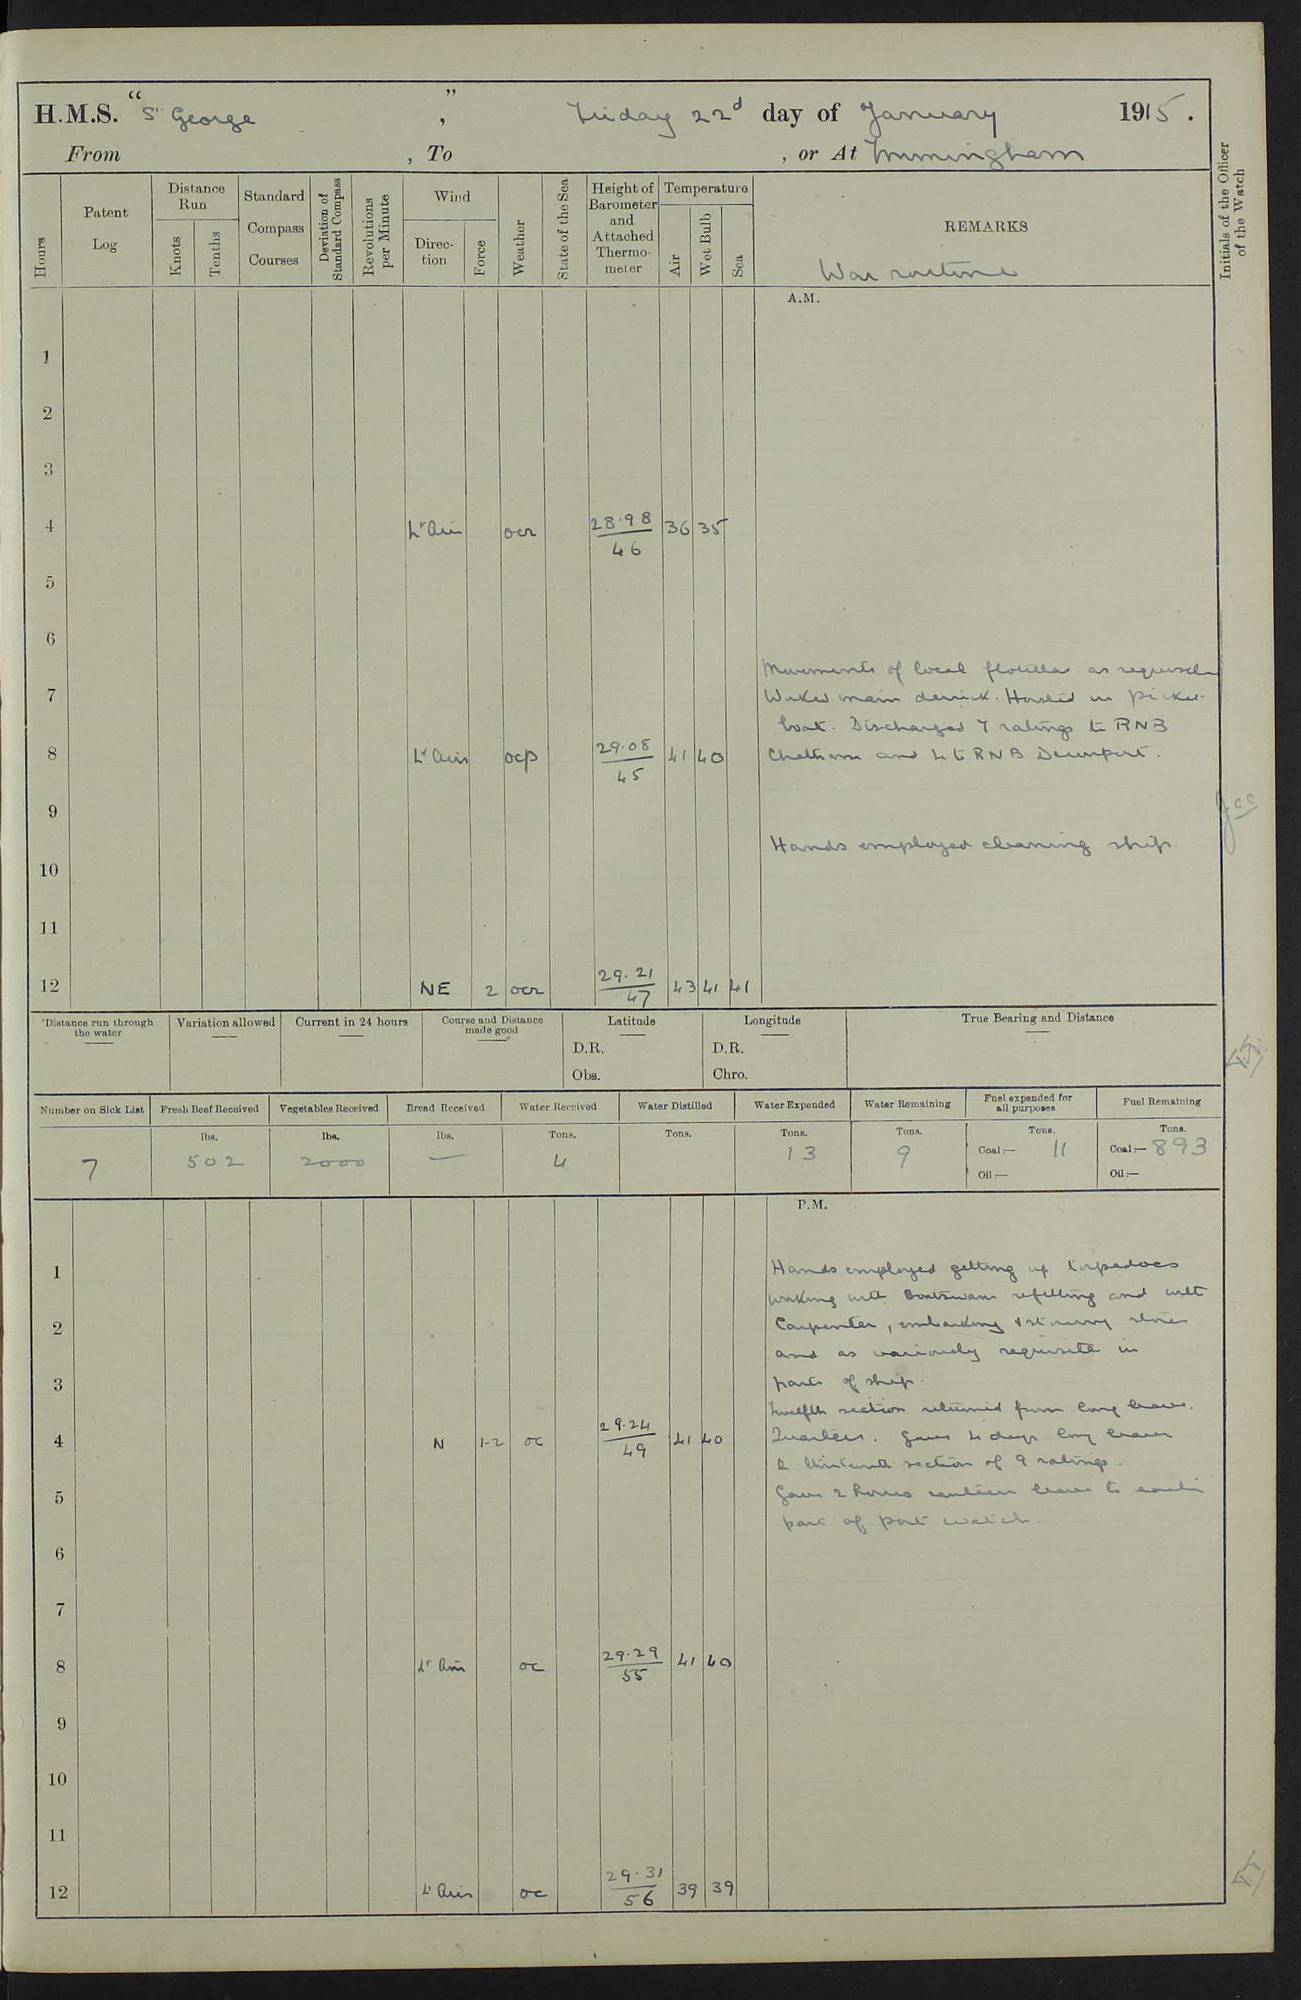 H.M.S. “St George”, Friday 22d day of January 1915.
From , To , or At Immingham
Hours
Patent Log
Distance Run
Knots
Tenths
Standard Compass Courses
Deviation of Standard Compass
Revolutions per Minute
Wind
Direction
Force
Weather
State of the Sea
Height of Barometer and Attached Thermometer
Temperature
Air
Wet Bulb
Sea
REMARKS
War routine
Initials of the Officer of the Watch
A.M.
1
2
3
4 Lt Air ocr 28.98 36 35
46
5
6
Movements of local flotillas as requisite
7 Worked main derrick. Hoisted in picket
boat. Discharged 7 ratings to RNB
8 Lt Airs ocp 29.08 41 40 Chatham and 4 to RNB Devonport.
45
9
Hands employed cleaning ship
10
11
12 NE 2 ocr 29.21 43 41 41
47
Distance run through the water
Variation allowed
Current in 24 hours
Course and Distance made good
Latitude
D.R.
Obs.
Longitude
D.R.
Chro.
True Bearing and Distance
Number on Sick List Fresh Beef Received Vegetables Received Bread Received Water Received Water Distilled Water Expended Water Remaining Fuel expended for all purposes Fuel Remaining
lbs. lbs. lbs. Tons. Tons. Tons. Tons. Tons. Tons.
7 502 2000 — 4 13 9 Coal:— 11 Coal:— 893
Oil:— Oil:—
P.M.
1 Hands employed getting up torpedoes
working with Boatswain refitting and with
2 Carpenter, embarking & stowing stores
and as variously requisite in
3 parts of ship.
Twelfth section returned from long leave.
4 N 1-2 oc 29.24 41 40 Quarters. Gave 4 days long leave
49
to thirteenth section of 9 ratings.
5 Gave 2 hours canteen leave to each
part of port watch.
6
7
8 Lt Airs oc 29.29 41 40
55
9
10
11
12 Lt Airs oc 29.31 39 39
56